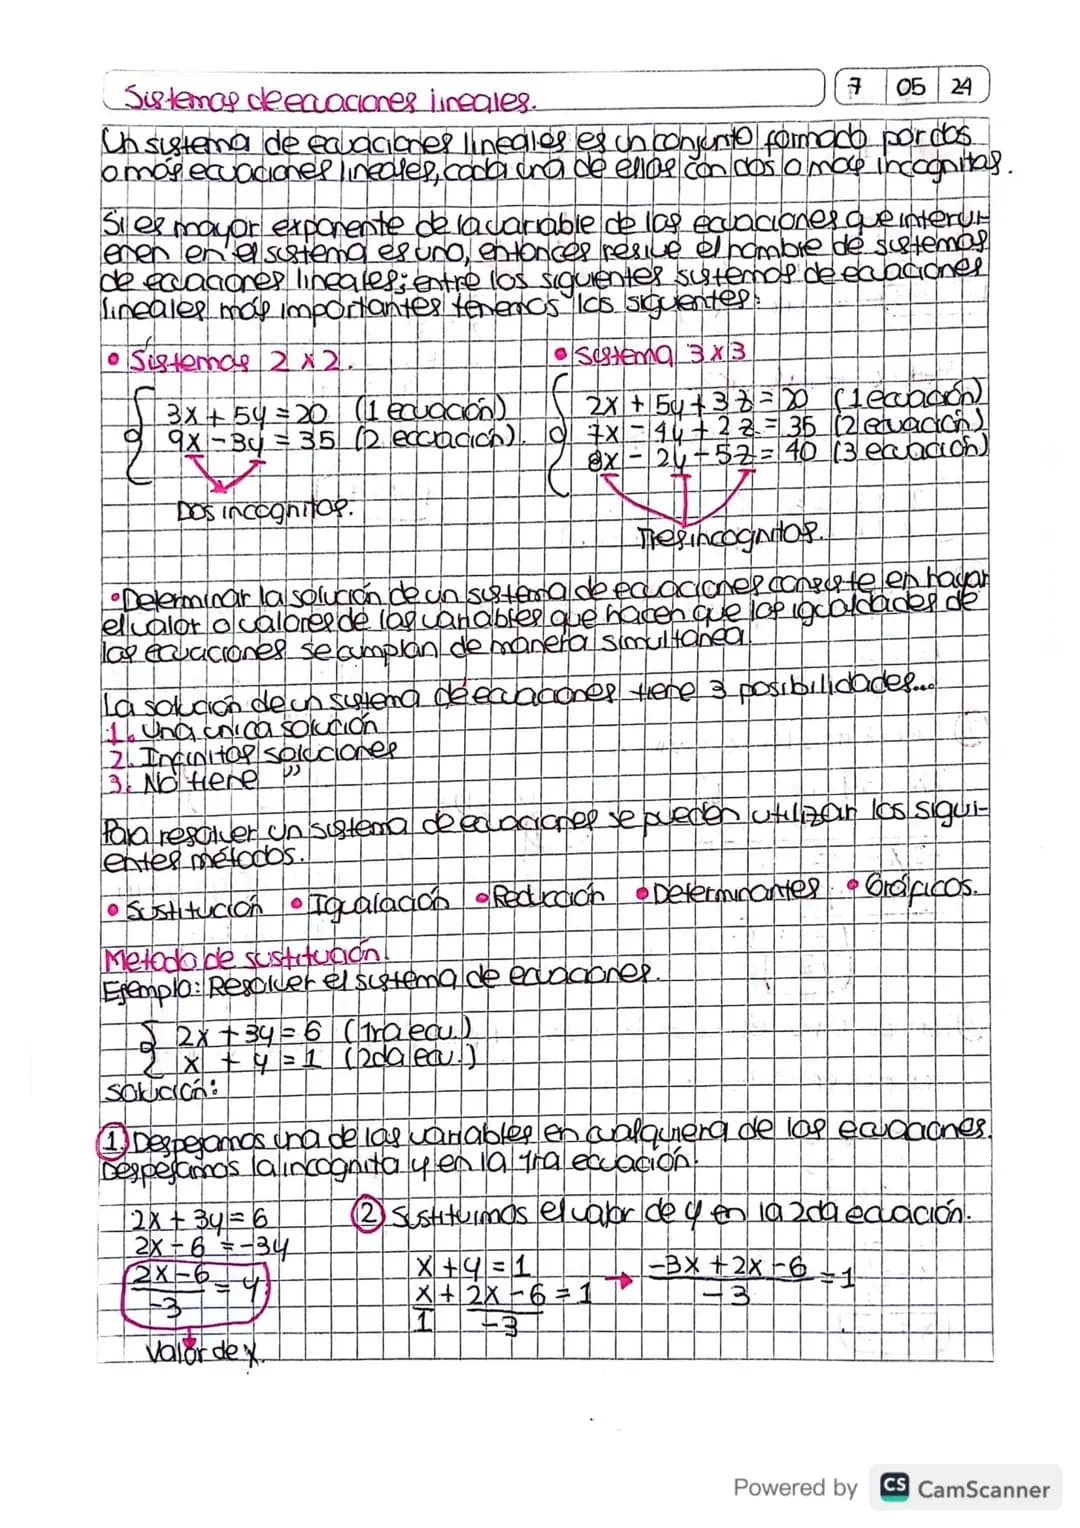 Sistemas de ecuaciones lineales.
7 05 24
Un sistema de ecuaciones lineales es un conjunto formado por dos
o más ecuaciones lineales, cada una de ellas con dos o mas incognitas.
Si es mayor exponente de la variable de las ecuaciones que intervi-
enen en el sistema es uno, entonces resive el nombre de sistemas
de ecuaciones lineales; entre los siguientes sistemas de ecuaciones
lineales más importantes tenemos los siguientes:
• Sistemas 2 x 2.
3x + 5y = 20 (1 ecuación)
9x - 3y = 35 (2 ecuación).
Dos incognitas.
• Sistema 3 x 3
2x + 5y + 3z = 20 (1 ecuación)
7x - 4y + 2z = 35 (2 ecuación)
8x - 2y - 5z = 40 (3 ecuación)
Tres incognitas.
• Determinar la solución de un sistema de ecuaciones consiste en hayar
el valor o valores de las variables que hacen que las igualdades de
las ecuaciones se cumplan de manera simultanea.
La solución de un sistema de ecuaciones tiene 3 posibilidades...
1. Una unica solución
2. Infinitas soluciones
3. No tiene ”
Para resolver un sistema de ecuaciones se pueden utilizar los sigui-
entes métodos.
• Sustitución • Igualación • Reducción • Determinantes • Gráficos.
Metodo de sustitución.
Ejemplo: Resolver el sistema de ecuaciones.
2x + 3y = 6 (1ra ecu.)
x + y = 1 (2da ecu.)
Solución:
1 Despejamos una de las variables en cualquiera de las ecuaciones.
Despejamos la incognita y en la 1ra ecuación.
2x + 3y = 6
2x - 6 = -3y
2x - 6 = y
-3
Valor de y.
2 Sustituimos el valor de y en la 2da ecuación.
x + y = 1
x + 2x - 6 = 1 → -3x + 2x - 6 = 1
1 -3 -3
Powered by CS CamScanner